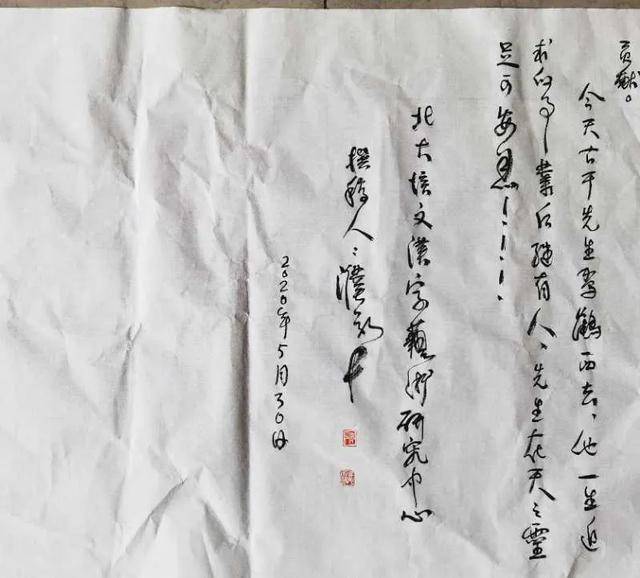 贡献。
今天古干先生驾鹤西去，他一生追
求的事业后继有人，先生在天之灵
足可安息！！！！
北大培文汉字藝術研究中心
撰稿人：濮
2020年5月30日